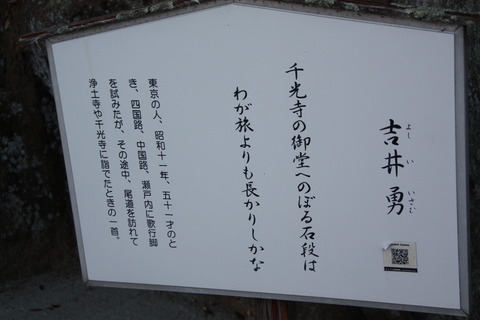 吉井勇
よしい いさむ
千光寺の御堂へのぼる石段は
わが旅よりも長かりしかな
東京の人、昭和十一年、五十一才のと
き、四国路、中国路、瀬戸内に歌行脚
を試みたが、その途中、尾道を訪れて
浄土寺や千光寺に詣でたときの一首。